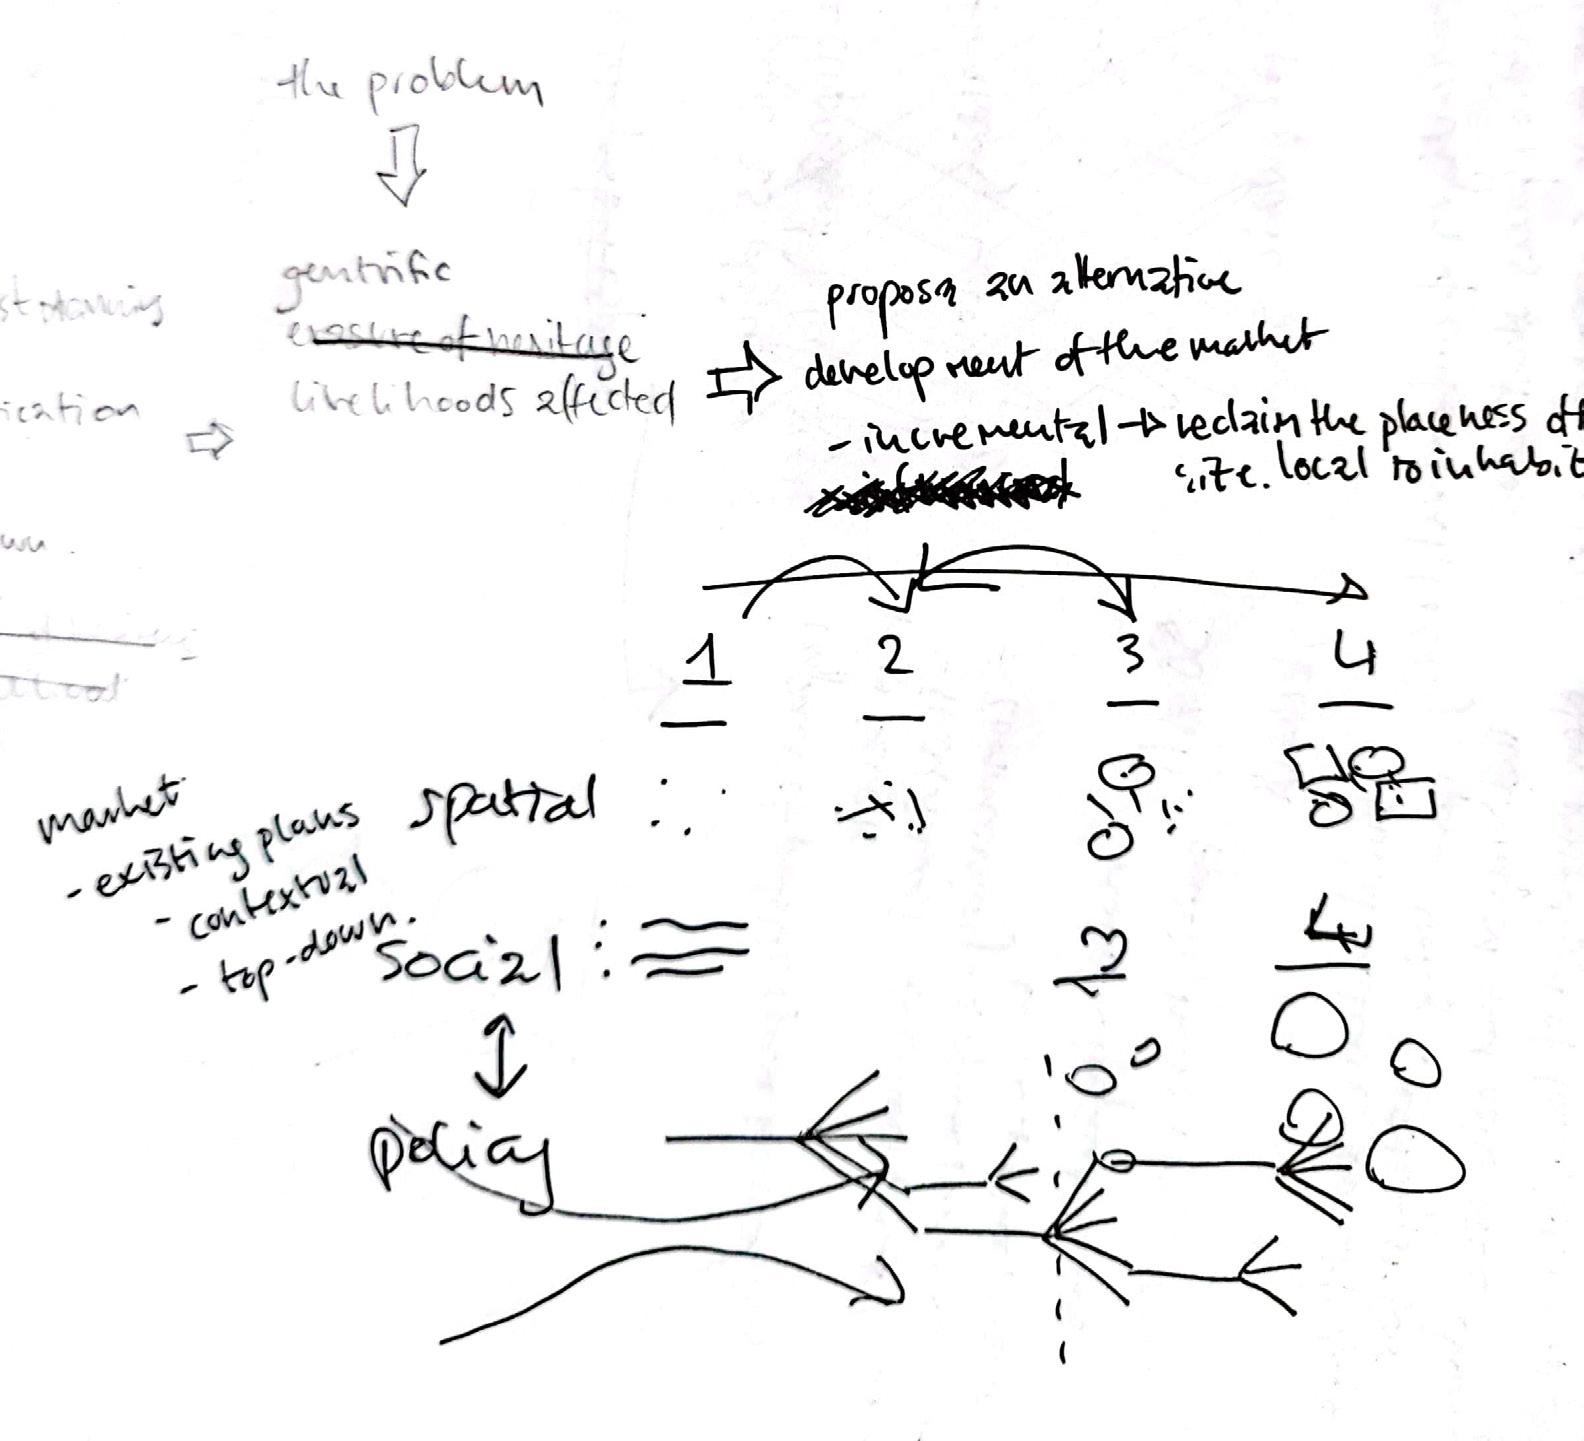 the problem
gentrific
erasure of heritage
livelihoods affected
ication
propose an alternative
development of the market
- incremental → reclaim the placeness of
site. local to inhabit
1 2 3 4
spatial :
market
- existing plans
- contextual
- top-down.
social :
3 4
policy